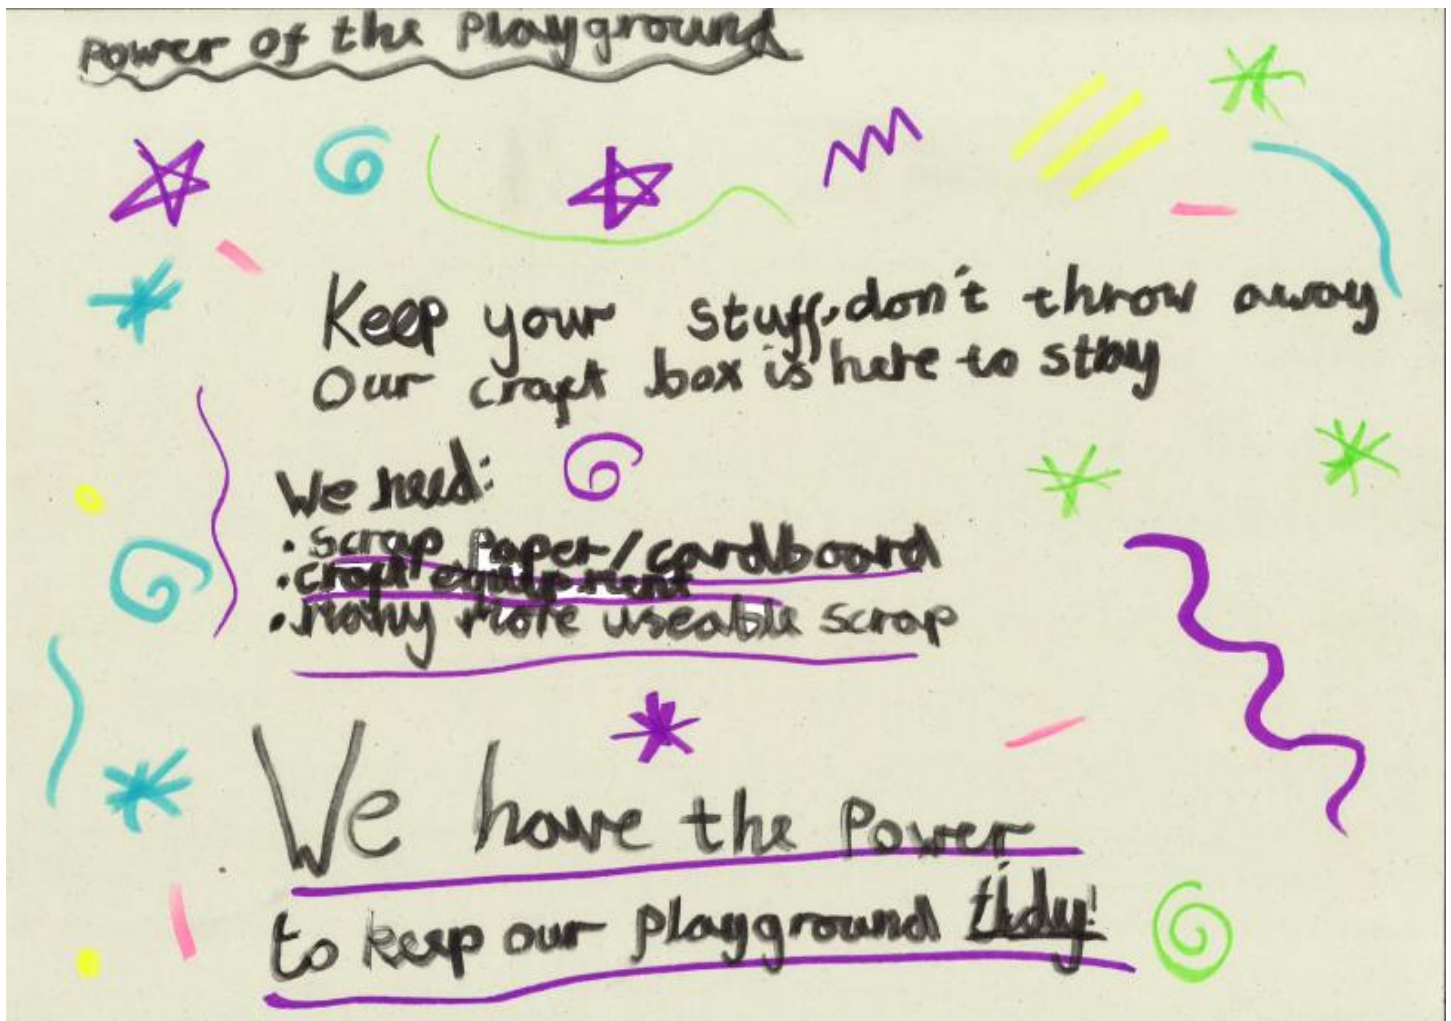 Power of the Playground
Keep your stuff, don't throw away
Our craft box is here to stay
We need:
• Scrap Paper/cardboard
• Craft equipment
• Many more useable scrap
We have the Power
to keep our playground tidy!